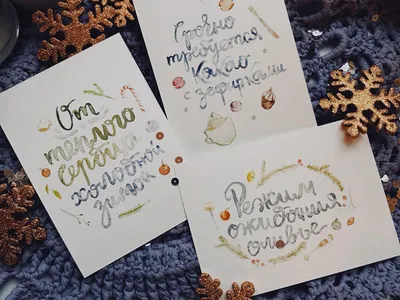 От
теплого
сердца
холодной
зимой
Срочно
требуется
Какао
с зефирками
Режим
ожидания
оливье